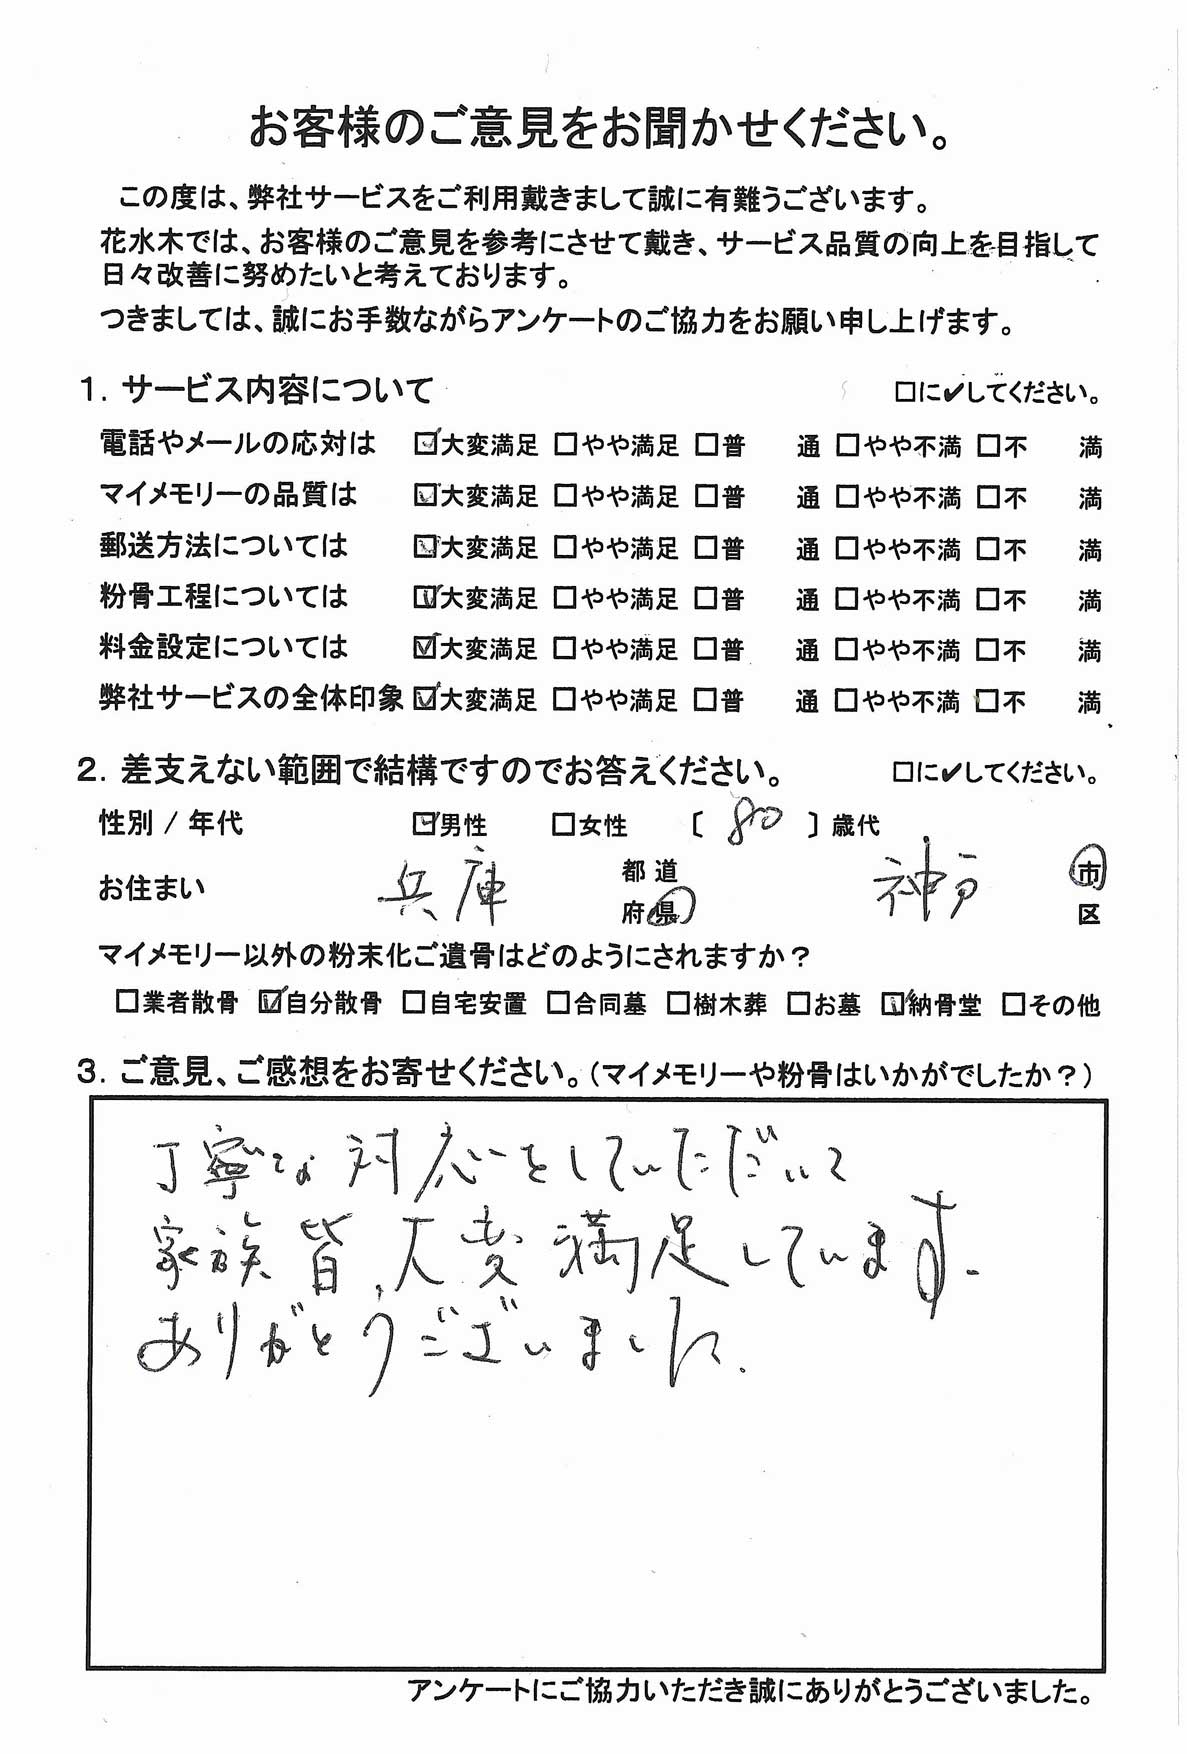 お客様のご意見をお聞かせください。
この度は、弊社サービスをご利用戴きまして誠に有難うございます。
花水木では、お客様のご意見を参考にさせて戴き、サービス品質の向上を目指して
日々改善に努めたいと考えております。
つきましては、誠にお手数ながらアンケートのご協力をお願い申し上げます。
１．サービス内容について □に✔してください。
電話やメールの応対は ☑大変満足 □やや満足 □普 通 □やや不満 □不 満
マイメモリーの品質は ☑大変満足 □やや満足 □普 通 □やや不満 □不 満
郵送方法については ☑大変満足 □やや満足 □普 通 □やや不満 □不 満
粉骨工程については ☑大変満足 □やや満足 □普 通 □やや不満 □不 満
料金設定については ☑大変満足 □やや満足 □普 通 □やや不満 □不 満
弊社サービスの全体印象 ☑大変満足 □やや満足 □普 通 □やや不満 □不 満
２．差支えない範囲で結構ですのでお答えください。 □に✔してください。
性別 / 年代 ☑男性 □女性 〔 80 〕歳代
お住まい 兵庫 都道府県 神戸 市区
マイメモリー以外の粉末化ご遺骨はどのようにされますか？
□業者散骨 ☑自分散骨 □自宅安置 □合同墓 □樹木葬 □お墓 ☑納骨堂 □その他
３．ご意見、ご感想をお寄せください。（マイメモリーや粉骨はいかがでしたか？）
丁寧な対応をしていただいて
家族皆、大変満足しています。
ありがとうございました。
アンケートにご協力いただき誠にありがとうございました。